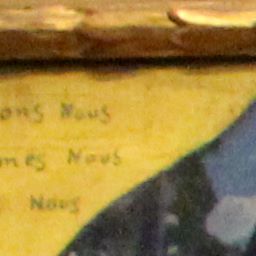 ons Nous
mes Nous
Nous